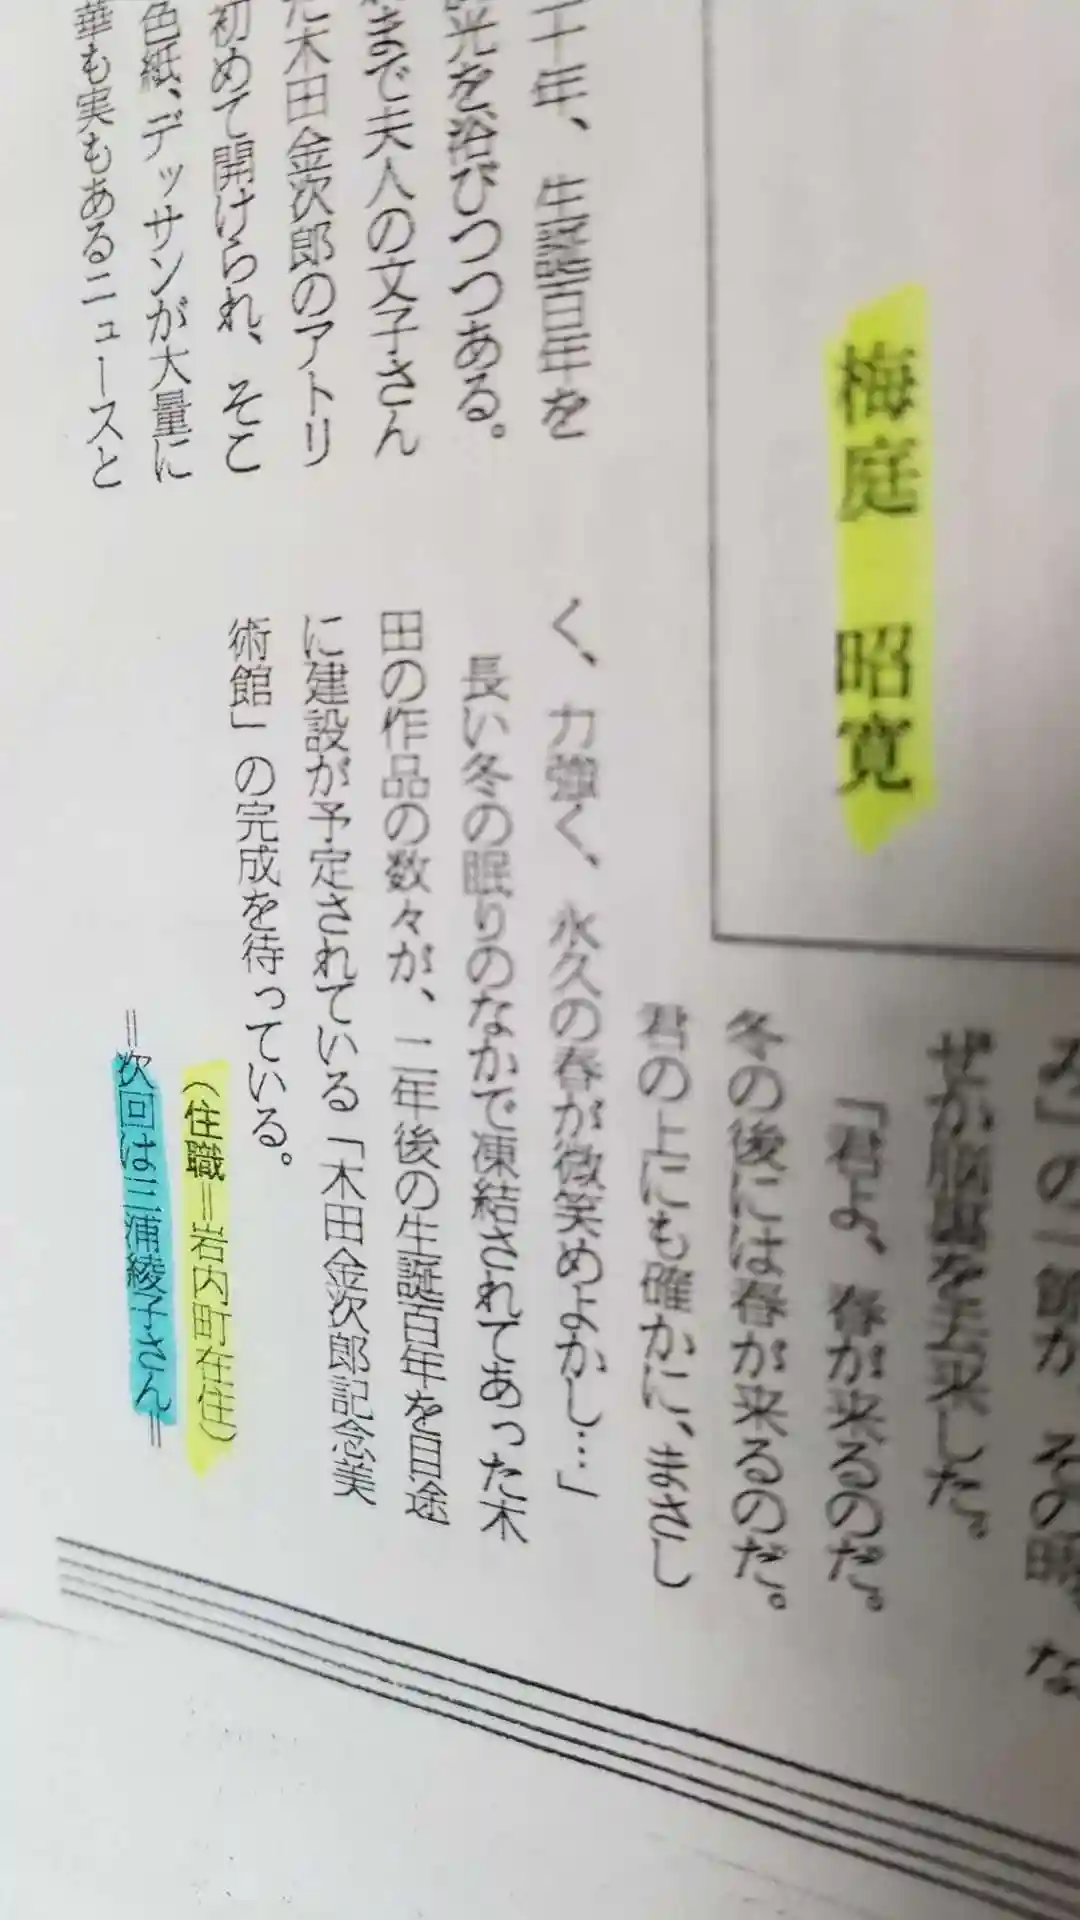 梅庭 昭寛
ぜか脳裏を去来した。
「君よ、春が来るのだ。
冬の後には春が来るのだ。
君の上にも確かに、まさし
く、力強く、永久の春が微笑めよかし…」
長い冬の眠りのなかで凍結されてあった木
田の作品の数々が、二年後の生誕百年を目途
に建設が予定されている「木田金次郎記念美
術館」の完成を待っている。
(住職=岩内町在住)
=次回は三浦綾子さん=
十年、生誕百年を
光を浴びつつある。
まで夫人の文子さん
た木田金次郎のアトリ
初めて開けられ、そこ
色紙、デッサンが大量に
華も実もあるニュースと